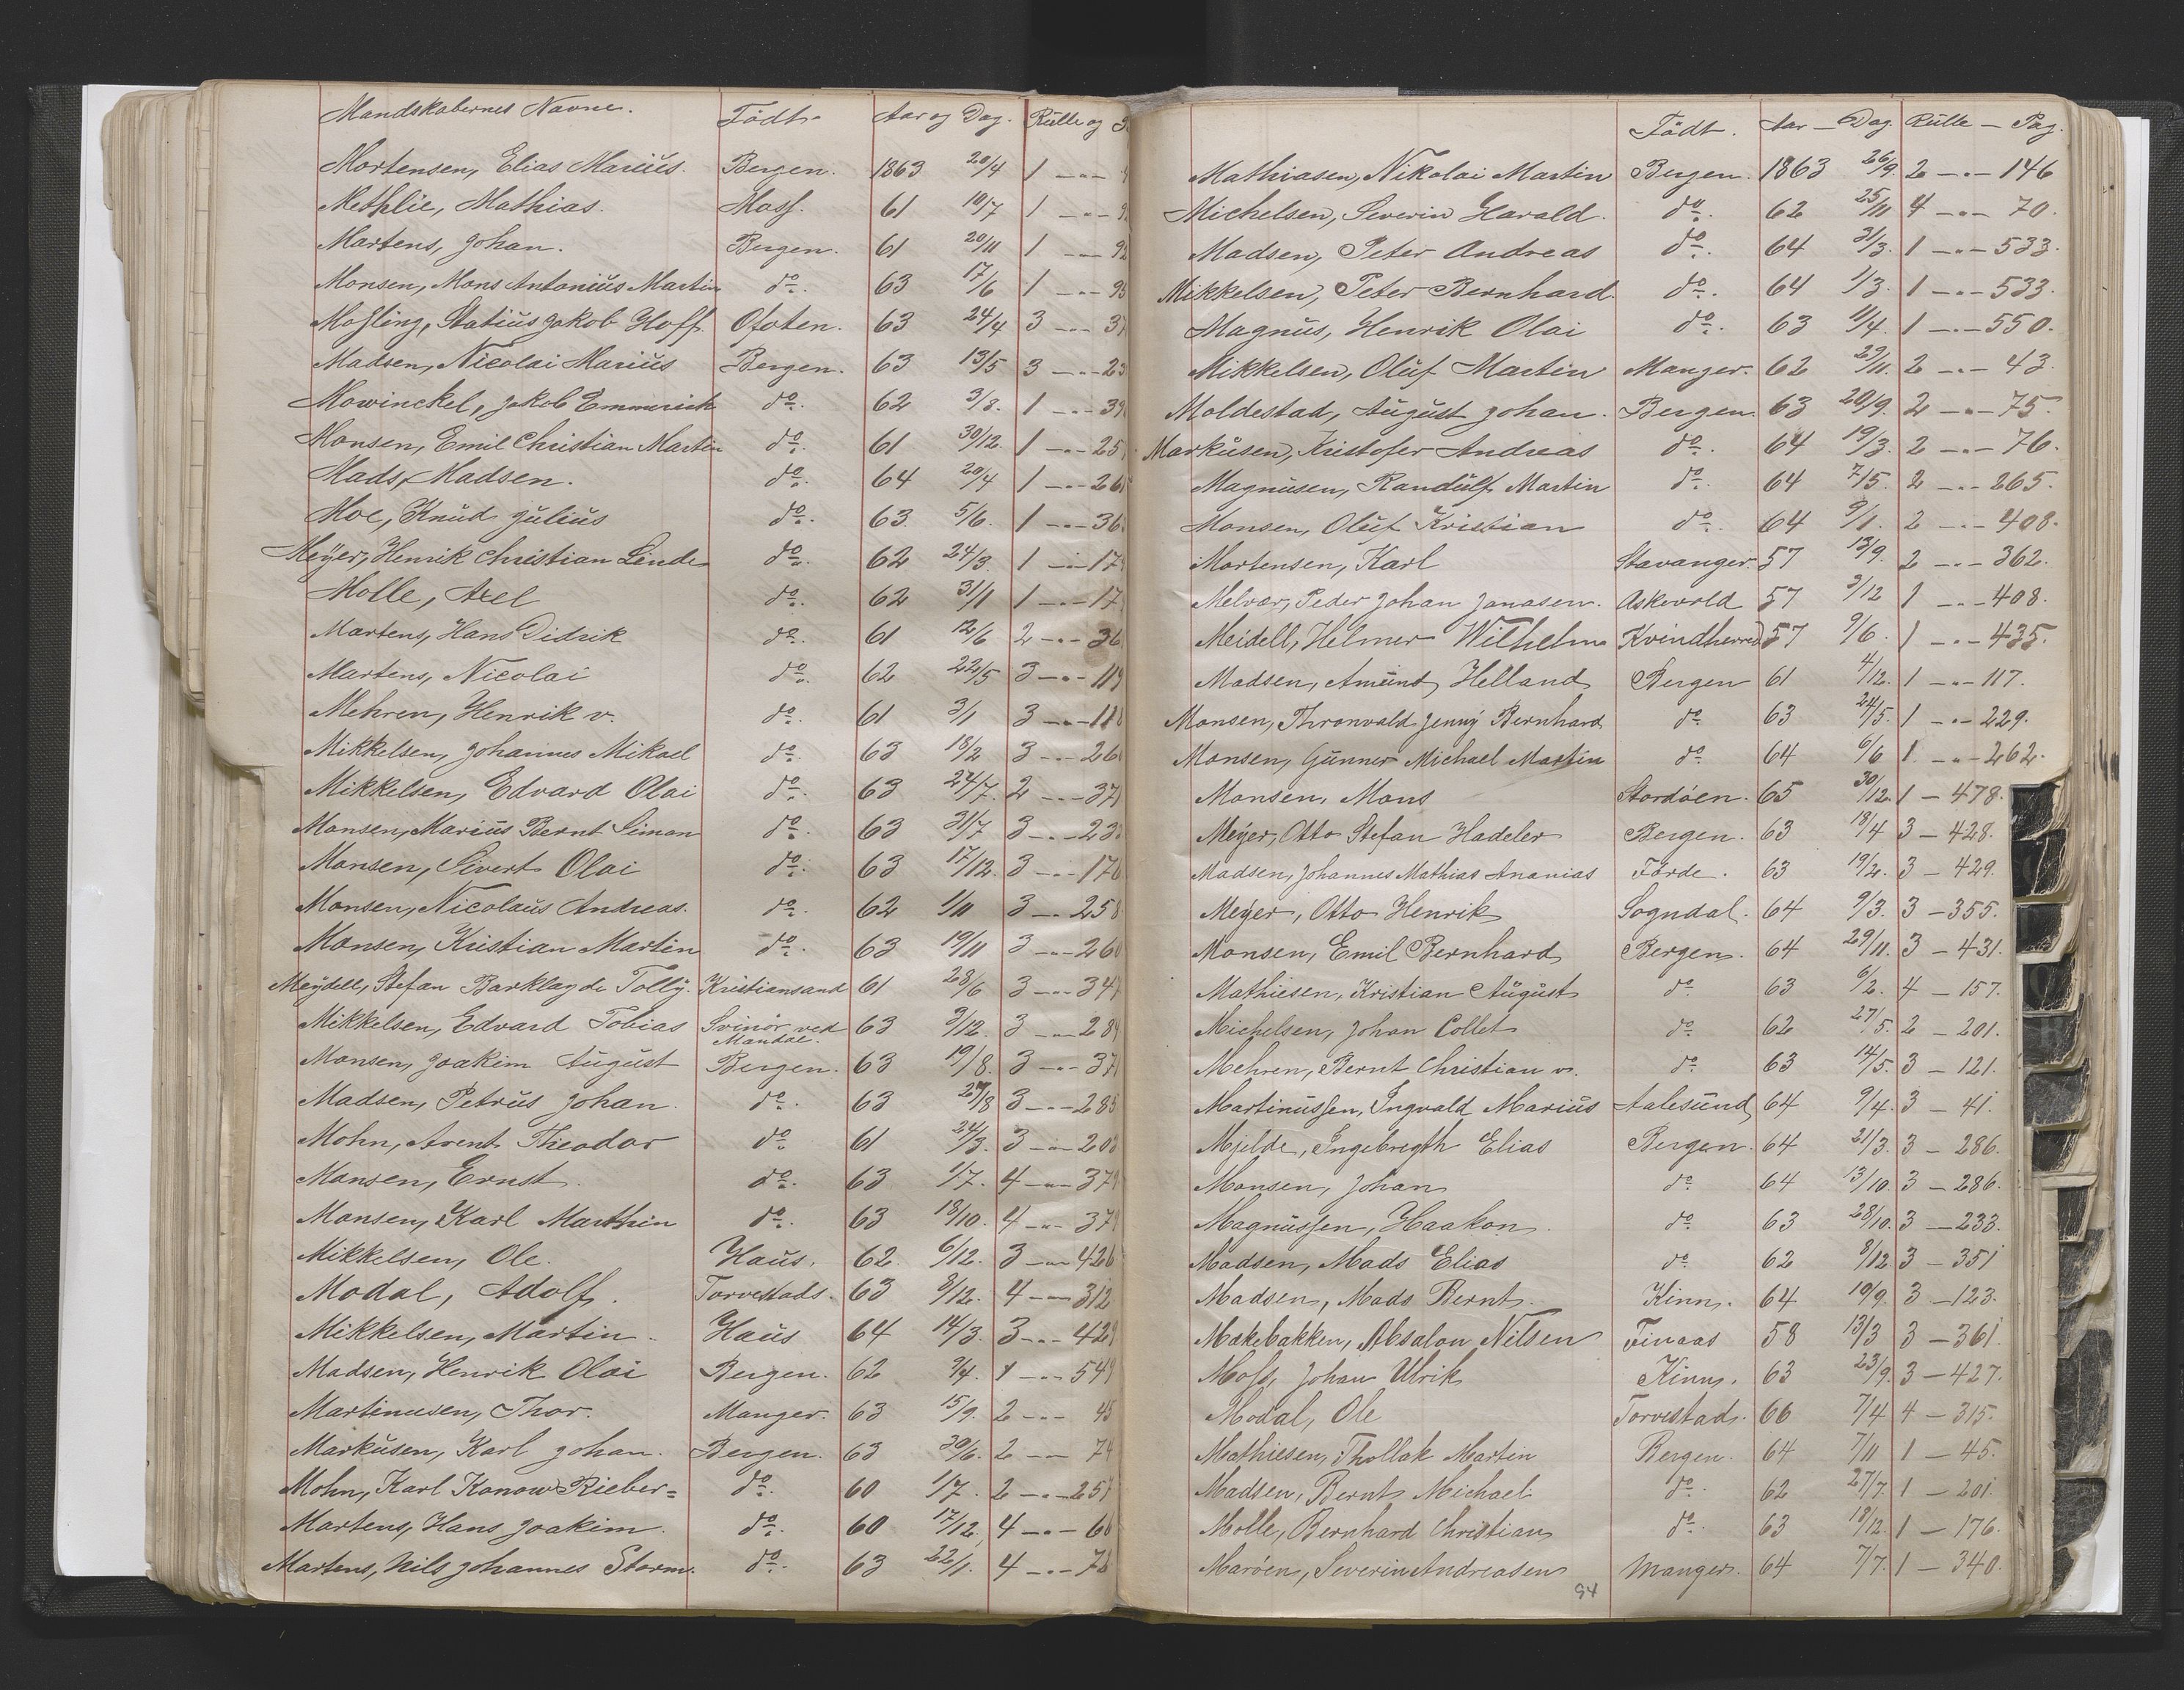 Mandskabernes Navne. Födt. Aar og Dag. Rulle og
Mortensen, Elias Marius. Bergen. 1863 20/4 1 -"-
Methlie, Mathias. Moss. 61 10/7 1 -"-
Martens, Johan. Bergen. 61 20/11 1 -"-
Monsen, Mons Antonius Martin do. 63 17/6 1 -"-
Mossling, Statius Jakob Hoff. Ofoten. 63 24/4 3 -"-
Madsen, Nicolai Marius Bergen. 63 13/5 3 -"-
Mowinckel, Jakob Emmerich do. 62 3/8. 1 -"-
Monsen, Emil Christian Martin do. 61 30/12. 1 -"-
Mads, Madsen. do. 64 20/4 1 -"-
Moe, Knud Julius do. 63. 5/6. 1 -"-
Meÿer, Henrik Christian Linde do. 62 24/3. 1 -"-
Molle, Axel do. 62 31/1 1 -"-
Martens, Hans Didrik do. 61 12/6 2 -"-
Martens, Nicolai do. 62 22/5 3 -"- 119
Mehren, Henrik v. do. 61 3/1 3 -"- 118
Mikkelsen, Johannes Mikael do. 63 18/2 3 -"-
Mikkelsen, Edvard Olai do. 63 24/7. 2 -"-
Monsen, Marius Bernt Simon do. 63 31/7 3 -"-
Monsen, Sivert Olai do. 63 17/12. 3 -"-
Monsen, Nicolaus Andreas. do. 62 1/11 3 -"- 258
Monsen, Kristian Martin do. 63 19/11 3 -"- 260
Meÿdell, Stefan Barklay de Tollÿ. Kristiansand 61 28/6 3 -"- 347
Mikkelsen, Edvard Tobias Svinör ved Mandal. 63 3/12. 3 -"- 289
Monsen, Joakim August Bergen. 63 19/8. 3 -"-
Madsen, Petrus Johan. do. 63 27/8 3 -"- 285
Mohn, Arent Theodor do. 61 24/3. 3 -"- 208
Monsen, Ernst. do. 63 1/7. 4 -"- 379
Monsen, Karl Marthin do. 63 18/10. 4 -"- 379
Mikkelsen, Ole. Haus. 62. 6/12. 3 -"- 426
Modal, Adolf. Torvestads. 63 8/12. 4 -"- 312
Mikkelsen, Martin. Haus 64 14/3. 3 -"- 429
Madsen, Henrik Olai Bergen. 62 9/4. 1 -"- 549
Martinusen, Thor. Manger. 63 15/9. 2 -"- 45
Markusen, Karl Johan. Bergen. 63 30/6. 2 -"- 74
Mohn, Karl Konow Rieber= do. 60 1/7. 2 -"- 257
Martens, Hans Joakim. do. 60 17/12. 4 -"-
Martens, Nils Johannes Storm. do. 63 22/1. 4 -"- 78
Födt. Aar — Dag. Rulle — Pag.
Mathiasen, Nikolai Martin Bergen. 1863 26/9. 2 -"- 146
Michelsen, Severin Harald. do. 62 25/11 4 -"- 70.
Madsen, Peter Andreas do. 64 3/3. 1 -"- 533.
Mikkelsen, Peter Bernhard. do. 64 1/3. 1 -"- 533.
Magnus, Henrik Olai do. 63 11/4. 1 -"- 550.
Mikkelsen, Oluf Martin Manger. 62 29/11. 2 -"- 43.
Moldestad, August Johan. Bergen. 63 20/9. 2 -"- 75.
Markusen, Kristofer Andreas do. 64 19/3. 2 -"- 76.
Magnusen, Randulf Martin do. 64 7/5. 2 -"- 265.
Monsen, Oluf Kristian do. 64 9/1. 2 -"- 408.
Mortensen, Karl Stavanger. 57 13/9. 2 -"- 362.
Melvær, Peder Johan Janasen. Askevold 57 3/12 1 -"- 408.
Meidell, Helmer Wilhelm Kvindherred 57 9/6. 1 -"- 435.
Madsen, Amund Helland Bergen 61 4/12. 1 -"- 117.
Monsen, Thronvald Jenny Bernhard do. 63 24/5. 1 -"- 229.
Monsen, Gunner Michael Martin do 64 6/6 1. -"- 262.
Monsen, Mons Stordöen. 65 30/12. 1 — 478.
Meyer, Otto Stefan Hadeler Bergen. 63 18/4 3 — 428.
Madsen, Johannes Mathias Ananias Förde. 63 19/2. 3 — 429.
Meyer, Otto Henrik Sogndal. 64 9/3. 3 — 355.
Monsen, Emil Bernhard Bergen. 64 29/11. 3 — 431.
Mathiesen, Kristian August do. 63 6/2. 4 — 157.
Michelsen, Johan Collet do 62 27/5. 2 — 201.
Mehren, Bernt Christian v. do. 63 14/5. 3 — 121.
Martinussen, Ingvald Marius Aalesund 64 9/4. 3 — 41.
Mjelde, Ingebregth Elias Bergen. 64 21/3. 3 — 286.
Monsen, Johan do 64 13/10. 3 — 286.
Magnussen, Haakon. do 63 28/10. 3 — 233.
Madsen, Mads Elias do 62 8/12 3 — 351
Madsen, Mads Bernt. Kinn. 64 19/9. 3 — 123.
Makebakken, Absalon Nilsen Finaas 58 13/3 3 — 361
Moss, Johan Ulrik Kinn. 63 23/9. 3 — 427.
Modal, Ole Torvestad. 66 7/4 4 — 315.
Mathiesen, Thollak Martin Bergen. 64 7/11 1 — 45.
Madsen, Bernt Michael do. 62 27/7. 1 — 201.
Molle, Bernhard Christian do. 63 18/12. 1 — 176.
Maröen, Severin Andreasen Manger. 64 7/7. 1 — 340
94